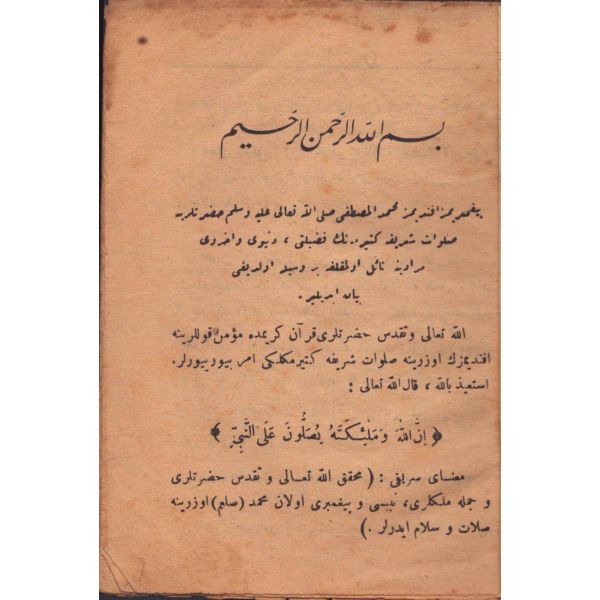 بسم الله الرحمن الرحيم
پيغمبريمز افنديمز محمد المصطفى صلى الله تعالى عليه وسلم حضرتلرينه
صلوات شريفه كتيرمه‌نك فضيلتى ، دنيوى واخروى
مرادينه نائل اولمقلغه بر وسيله اولديغى
بيان ايديلير.
الله تعالى وتقدس حضرتلرى قرآن كريمده مؤمن قوللرينه
افنديمزك اوزرينه صلوات شريفه كتيرمكلكى امر بيوريبورلر.
استعيذ بالله ، قال الله تعالى :
﴿ اِنَّ اللهَ وَمَلٰئِكَتَهُ يُصَلُّونَ عَلَى النَّبِىِّ ﴾
معناى شريفى : ( محقق الله تعالى و تقدس حضرتلرى
و جمله ملكلرى، نبيسى و پيغمبرى اولان محمد (صلعم) اوزرينه
صلات و سلام ايدرلر .)